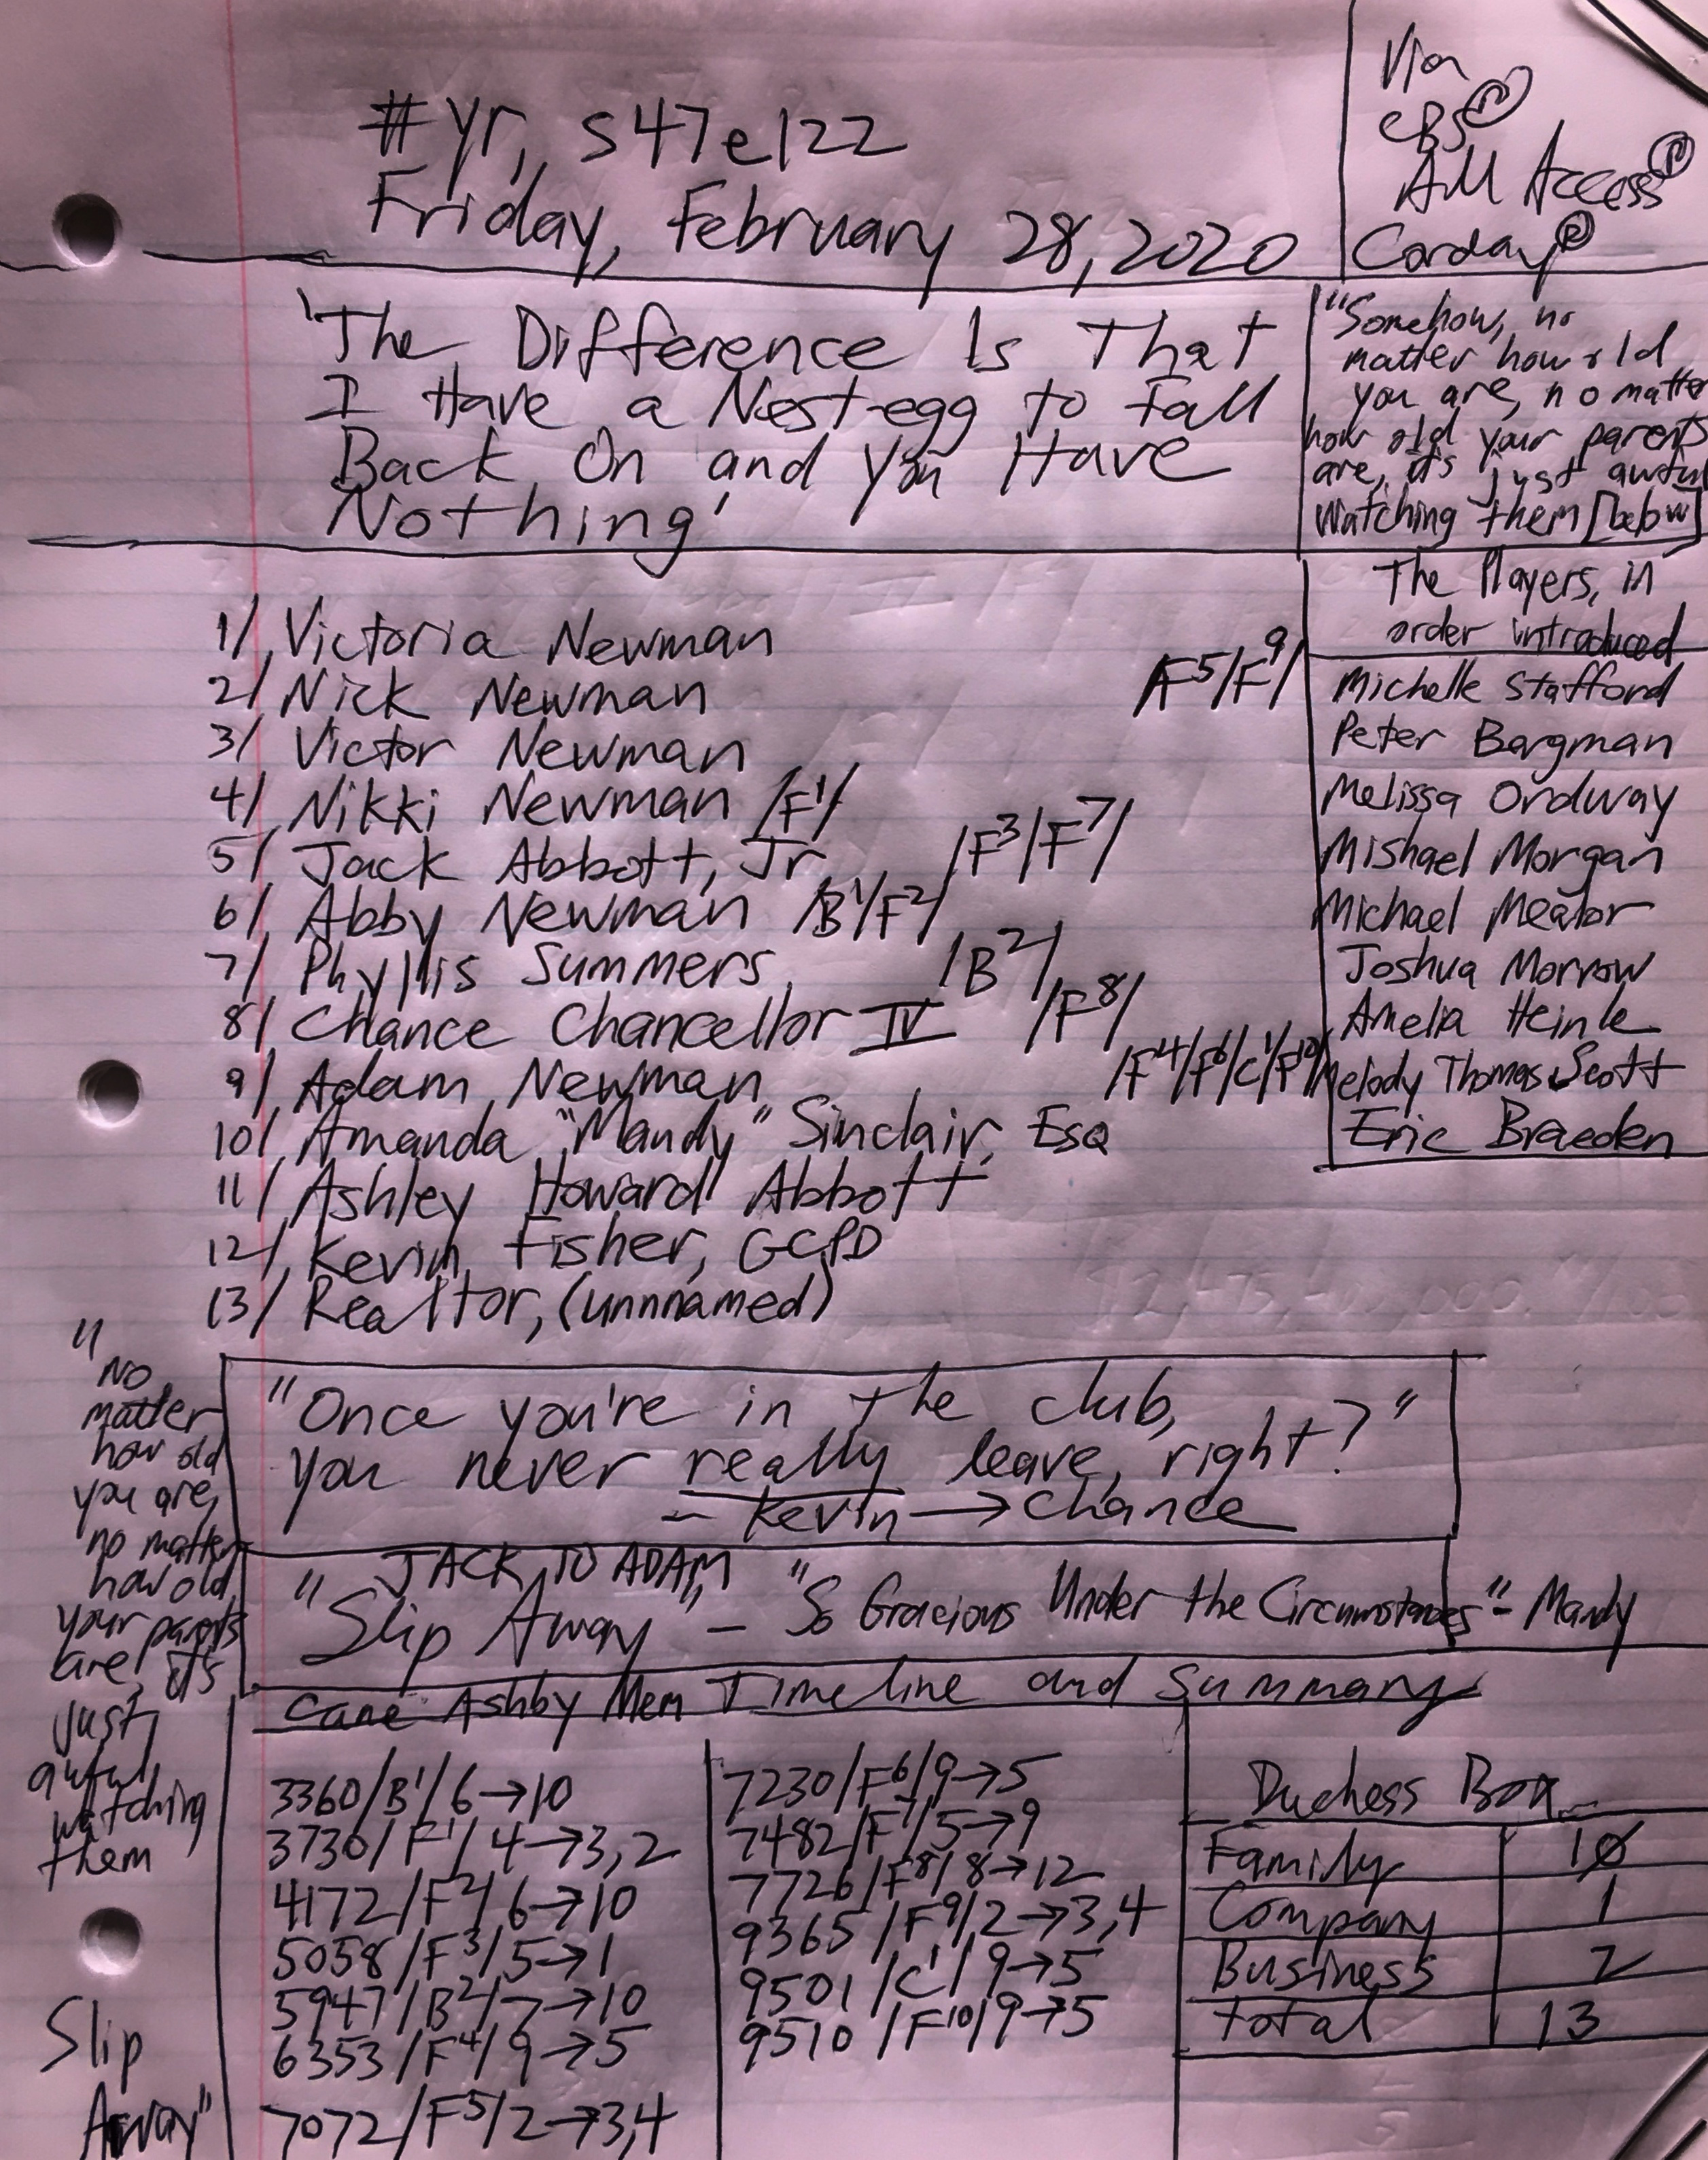 #yr, s47e122
Friday, February 28, 2020
Via
CBS
All Access
Corday
'The Difference Is That
I Have a Nest-egg to Fall
Back On and You Have
Nothing'
"Somehow, no
matter how old
you are, no matter
how old your parents
are, it's just awful
watching them [below]
The Players, in
order introduced
Michelle Stafford
Peter Bergman
Melissa Ordway
Mishael Morgan
Michael Mealor
Joshua Morrow
Amelia Heinle
Melody Thomas Scott
Eric Braeden
1/ Victoria Newman
2/ Nick Newman /F⁵/F⁹/
3/ Victor Newman
4/ Nikki Newman /F¹/
5/ Jack Abbott, Jr /F³/F⁷/
6/ Abby Newman /B¹/F²/
7/ Phyllis Summers /B²/
8/ Chance Chancellor IV /F⁸/
9/ Adam Newman /F⁴/F⁶/C¹/F¹⁰/
10/ Amanda "Mandy" Sinclair, Esq
11/ Ashley Howard Abbott
12/ Kevin Fisher, GCPD
13/ Realtor, (unnnamed)
"Once you're in the club,
you never really leave, right?"
- Kevin → Chance
JACK TO ADAM
"Slip Away" - "So Gracious Under the Circumstances" - Mandy
"No
matter
how old
you are,
no matter
how old
your parents
are, it's
just
awful
watching
them
Slip
Away"
Cane Ashby Mem Timeline and Summary
3360/B¹/6→10
3730/F¹/4→3,2
4172/F²/6→10
5058/F³/5→1
5947/B²/7→10
6353/F⁴/9→5
7072/F⁵/2→3,4
7230/F⁶/9→5
7482/F⁷/5→9
7726/F⁸/8→12
9365/F⁹/2→3,4
9501/C¹/9→5
9510/F¹⁰/9→5
Duchess Box
Family 10
Company 1
Business 2
total 13